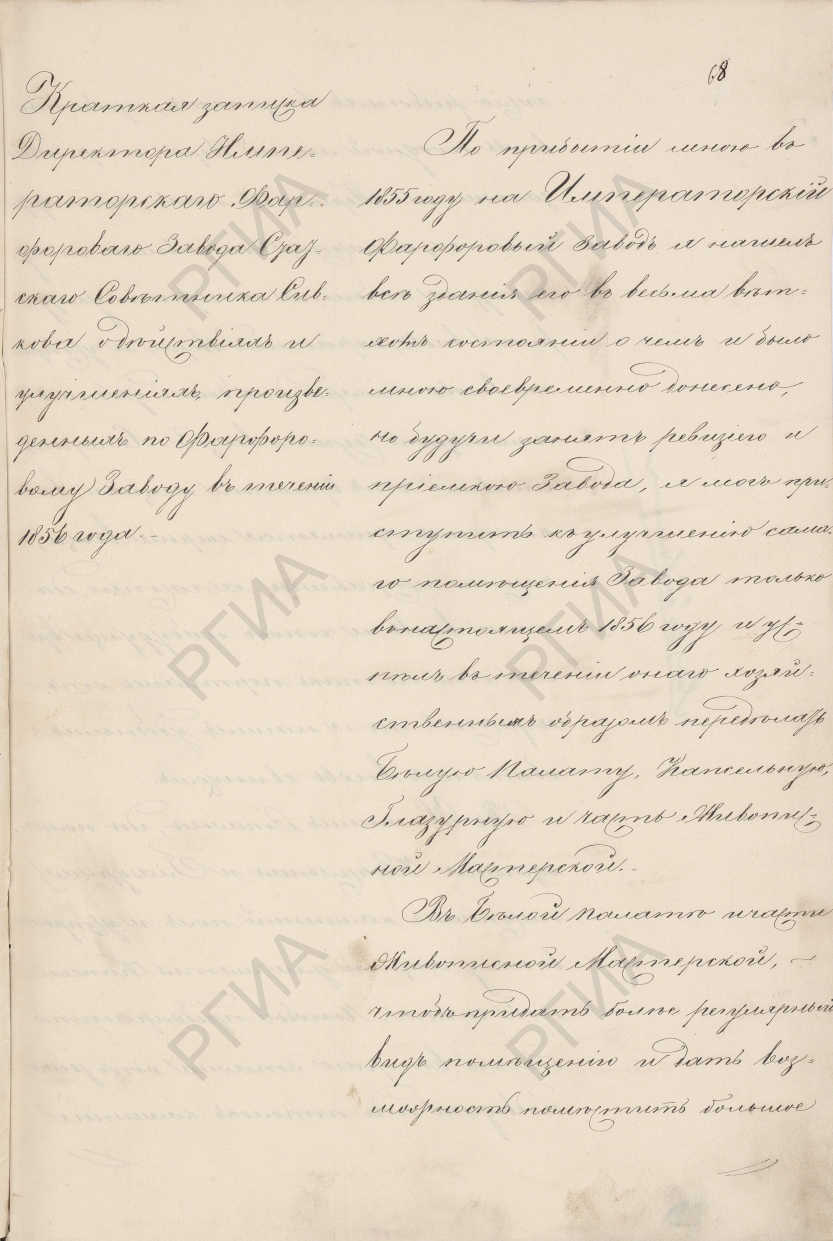 68
Краткая записка
Директора Импе-
раторскаго Фар-
фороваго Завода Стат-
скаго Советника Сив-
кова о действіяхъ и
улучшеніяхъ, произве-
денныхъ по Фарфоро-
вому Заводу въ теченіи
1856 года.-
По прибытіи мною въ
1855 году на Императорскій
Фарфоровый Заводъ я нашелъ
всѣ зданія его въ весьма вет-
хомъ состояніи о чемъ и было
мною своевременно донесено,
но будучи занятъ ревизіею и
пріемкою Завода, я могъ при-
ступить къ улучшенію сама-
го помѣщенія Завода только
въ настоящемъ 1856 году и ус-
пѣлъ въ теченіи онаго хозяй-
ственнымъ образомъ передѣлать
Бѣлую Палату, Капсельную,
Глазурную и часть Живопис-
ной Мастерской.-
Въ Бѣлой Палатѣ и части
Живописной Мастерской, —
чтобъ придать болѣе регулярный
видъ помѣщенію и дать воз-
можность помѣстить большое
РГИА
РГИА
РГИА
РГИА
РГИА
РГИА